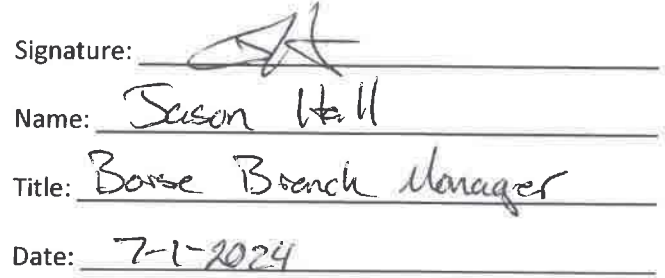 Signature:
Name: Jason Hall
Title: Boise Branch Manager
Date: 7-1-2024